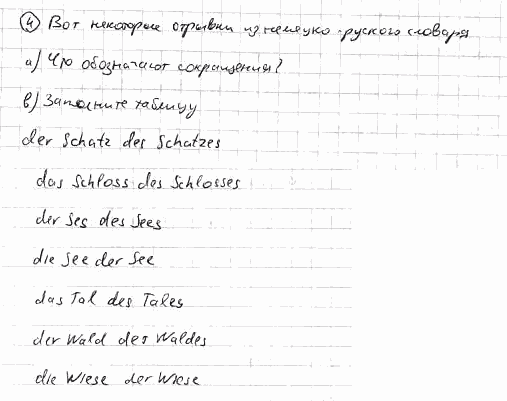 ④ Вот некоторые отрывки из немецко-руского словаря
а) Что обозначают сокращения?
в) Заполните таблицу
der Schatz des Schatzes
das Schloss des Schlosses
der Ses des Sees
die See der See
das Tal des Tales
der Wald des Waldes
die Wiese der Wiese